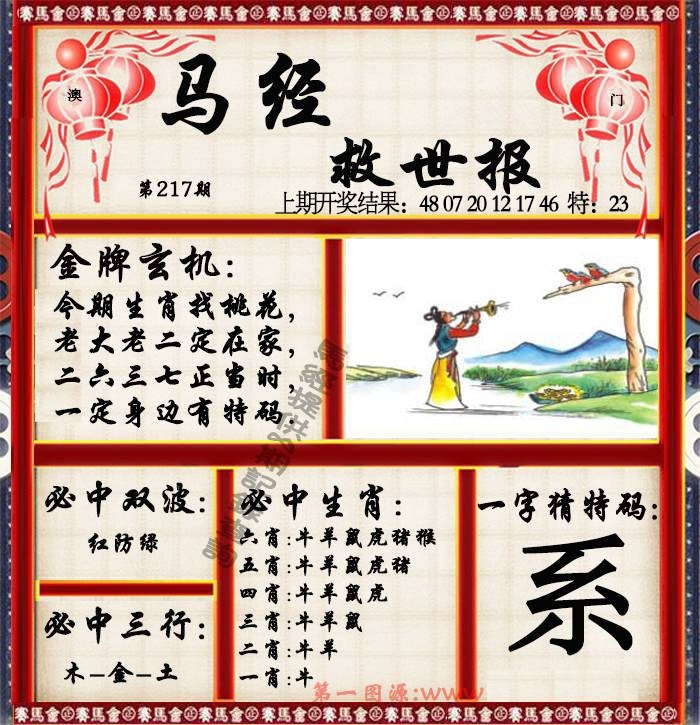 賽馬會正賽馬會正賽馬會正賽馬會正賽馬會正賽馬會正賽馬會
澳
门
马经
救世报
第217期
上期开奖结果：48 07 20 12 17 46 特：23
金牌玄机：
今期生肖找桃花，
老大老二定在家，
二六三七正当时，
一定身边有特码.
必中双波：
红防绿
必中三行：
木–金–土
必中生肖：
六肖:牛羊鼠虎猪猴
五肖:牛羊鼠虎猪
四肖:牛羊鼠虎
三肖:牛羊鼠
二肖:牛羊
一肖:牛
一字猜特码：
系
第一图源:www